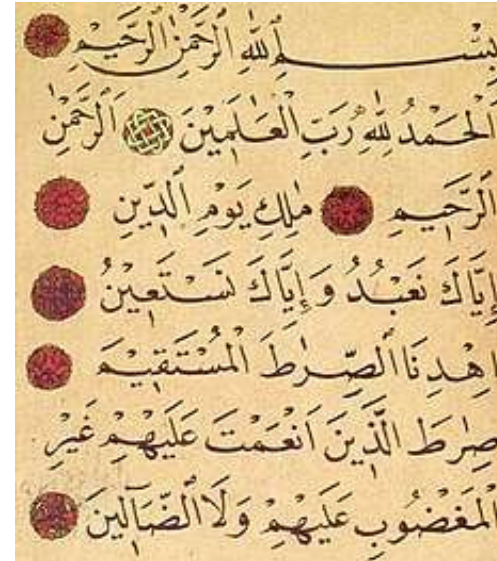 بِسْمِ ٱللَّهِ ٱلرَّحْمَٰنِ ٱلرَّحِيمِ
ٱلْحَمْدُ لِلَّهِ رَبِّ ٱلْعَٰلَمِينَ ٱلرَّحْمَٰنِ
ٱلرَّحِيمِ مَٰلِكِ يَوْمِ ٱلدِّينِ
إِيَّاكَ نَعْبُدُ وَإِيَّاكَ نَسْتَعِينُ
اِهْدِنَا ٱلصِّرَٰطَ ٱلْمُسْتَقِيمَ
صِرَٰطَ ٱلَّذِينَ اَنْعَمْتَ عَلَيْهِمْ غَيْرِ
ٱلْمَغْضُوبِ عَلَيْهِمْ وَلَا ٱلضَّآلِّينَ